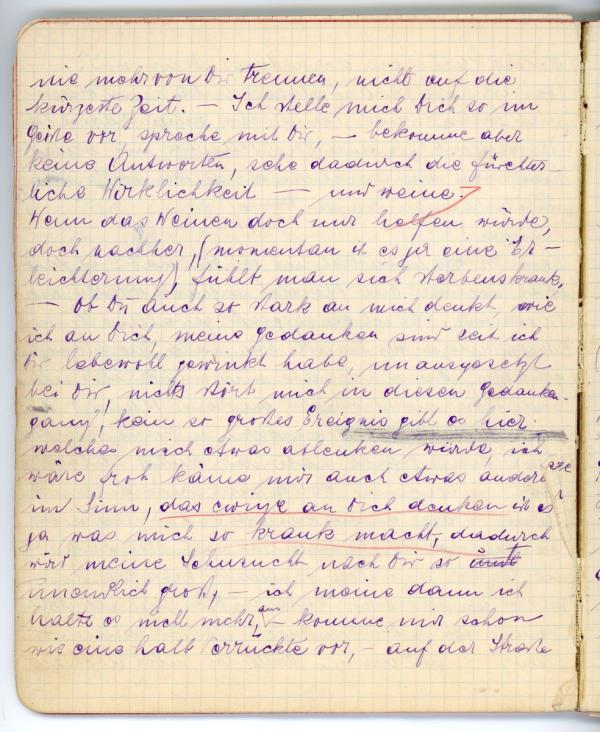 nie mehr von Dir trennen, nicht auf die
kürzeste Zeit. — Ich stelle mich Dich so im
Geiste vor, spreche mit Dir, — bekomme aber
keine Antworten, sehe dadurch die fürchter-
liche Wirklichkeit — und weine. —
Wenn das Weinen doch nur helfen würde,
doch nachher, (momentan ist es ja eine Er-
leichterung), fühlt man sich sterbenskrank,
— Ob Du auch so stark an mich denkst, wie
ich an Dich, meine Gedanken sind seit ich
Dir lebewohl gewinkt habe, unausgesetzt
bei Dir, nichts stört mich in diesen Gedanken-
gang, kein so großes Ereignis gibt es hier
welches mich etwas ablenken würde, ich
wäre froh käme mir auch etwas anderes
im Sinn, das ewige an Dich denken ist es
ja was mich so krank macht, dadurch
wird meine Sehnsucht nach Dir so
unendlich groß, — ich meine dann ich
halte es nicht mehr aus, — komme mir schon
wie eine halb Verrückte vor, — auf der Straße